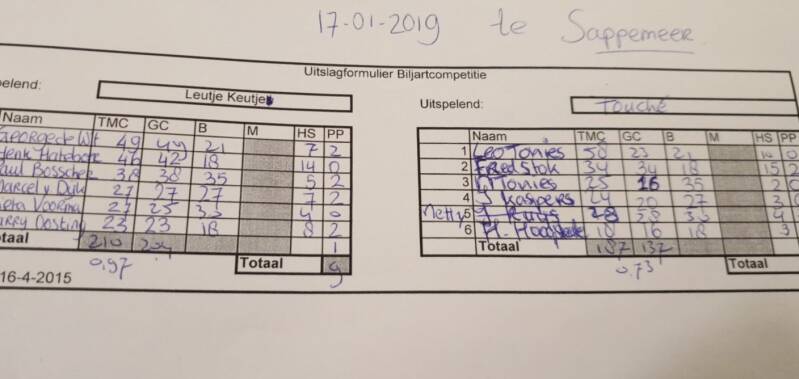 17-01-2019 te Sappemeer
Uitslagformulier Biljartcompetitie
pelend: Leutje Keutje
Naam TMC GC B M HS PP
George de Wit 49 49 21 7 2
Henk 46 42 18 14 0
Paul Bosscher 38 38 35 5 2
Marcel v Dijk 27 27 27 7 2
Voorma 27 25 33 4 0
Harry Oosting 23 23 18 8 2
Totaal 210 204 1
0,97 Totaal 9
16-4-2015
Uitspelend: Touché
Naam TMC GC B M HS PP
1 Leo Tonies 58 23 21 10 0
2 Fred Stok 34 34 18 15 2
3 W Tonies 25 16 35 2 0
4 J Kaspers 24 20 27 3 0
Netty 5 28 28 33 4
6 H. 18 16 18 3
Totaal 187 137
0.73 Totaal